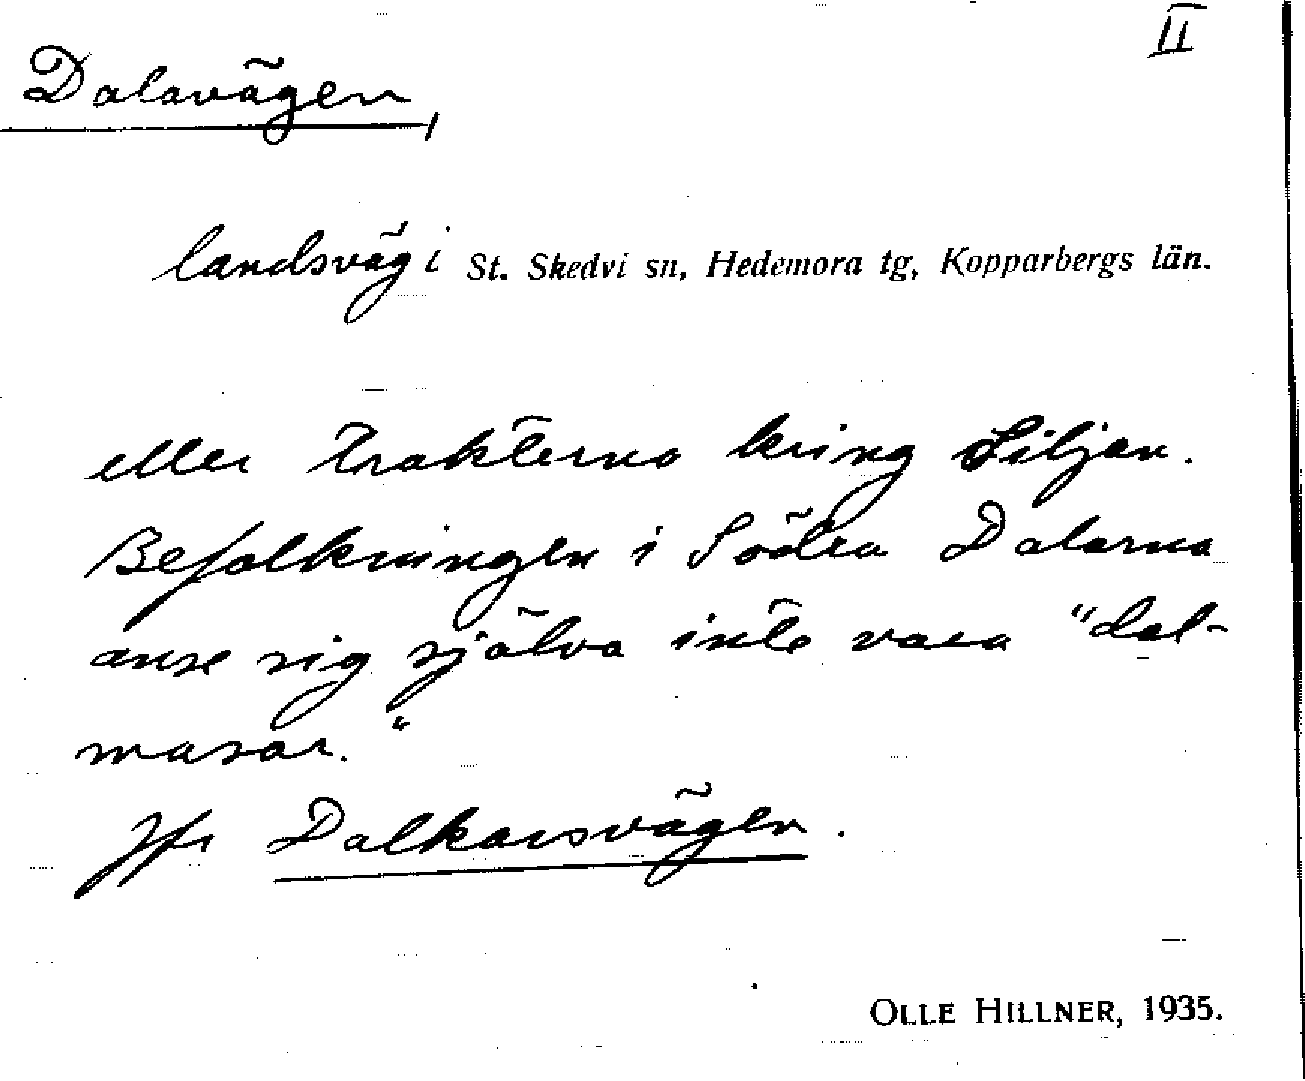 II
Dalavägen,
landsväg i St. Skedvi sn, Hedemora tg, Kopparbergs län.
eller trakterna kring Siljan.
Befolkningen i Södra Dalarna
anse sig själva inte vara "dal-
masar."
Jfr Dalkarsvägen.
OLLE HILLNER, 1935.